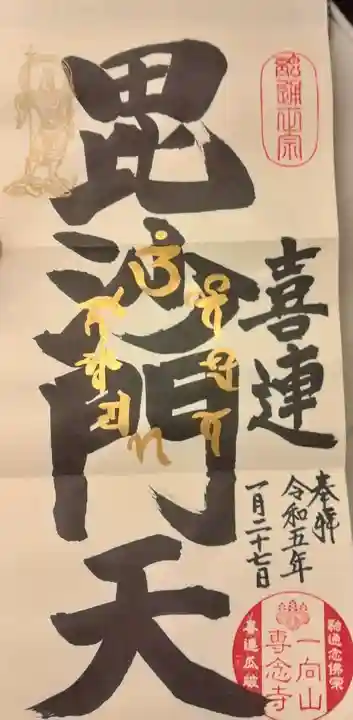 融通正宗
喜連
毘沙門天
奉拝
令和五年
一月二十七日
融通念佛宗
一向山
専念寺
喜連瓜破